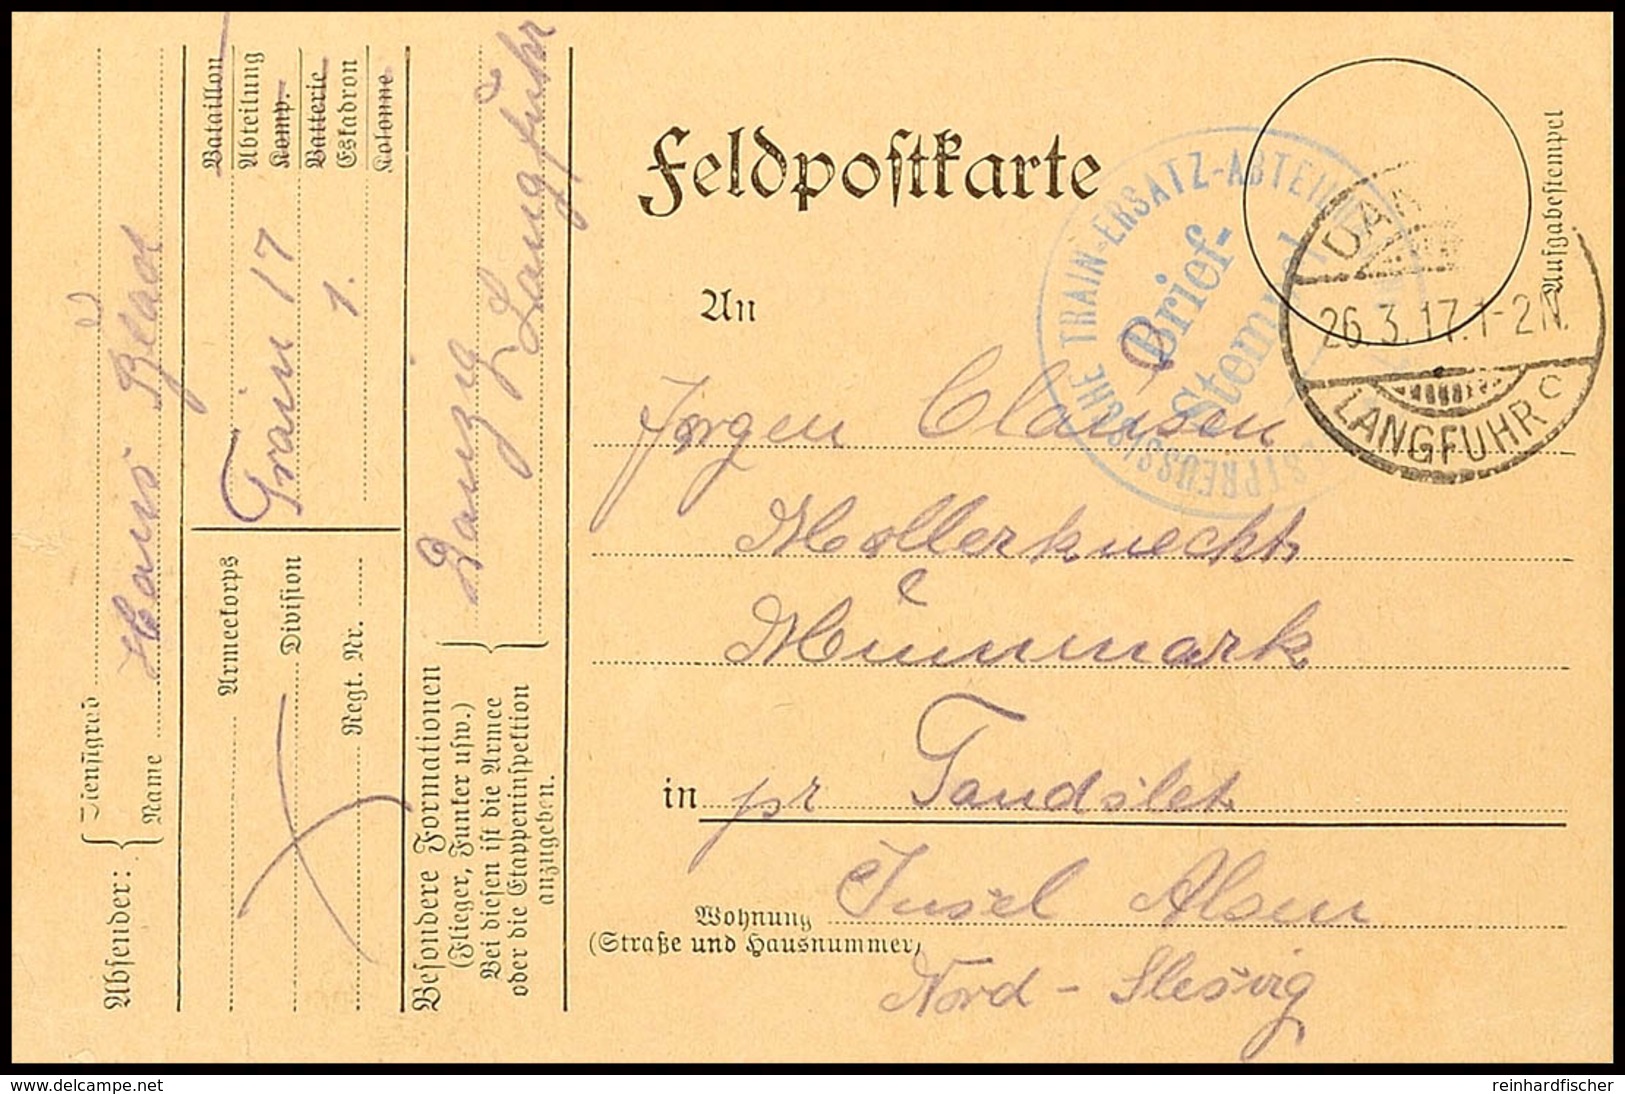 Feldpostkarte
An
Jørgen Clausen
Mollerknecht
Mummark
in pr Tandslet
Wohnung Insel Alsen
(Straße und Hausnummer)
Nord - Slesvig
Aufgabestempel
TRAIN-ERSATZ-ABTEIL
Brief-
Stempel
26.3.17.1-2N.
LANGFUHR c
Absender:
Dienstgrad
Name Hans
Bataillon
Abteilung
Komp.
Batterie
Eskadron
Kolonne
Train 17
1.
Armeekorps
Division
Regt. Nr.
Besondere Formationen
(Flieger, Funker usw.)
Bei diesen ist die Armee
oder die Etappeninspektion
anzugeben.
Danzig
Langfuhr
www.delcampe.net
reinhardfischer